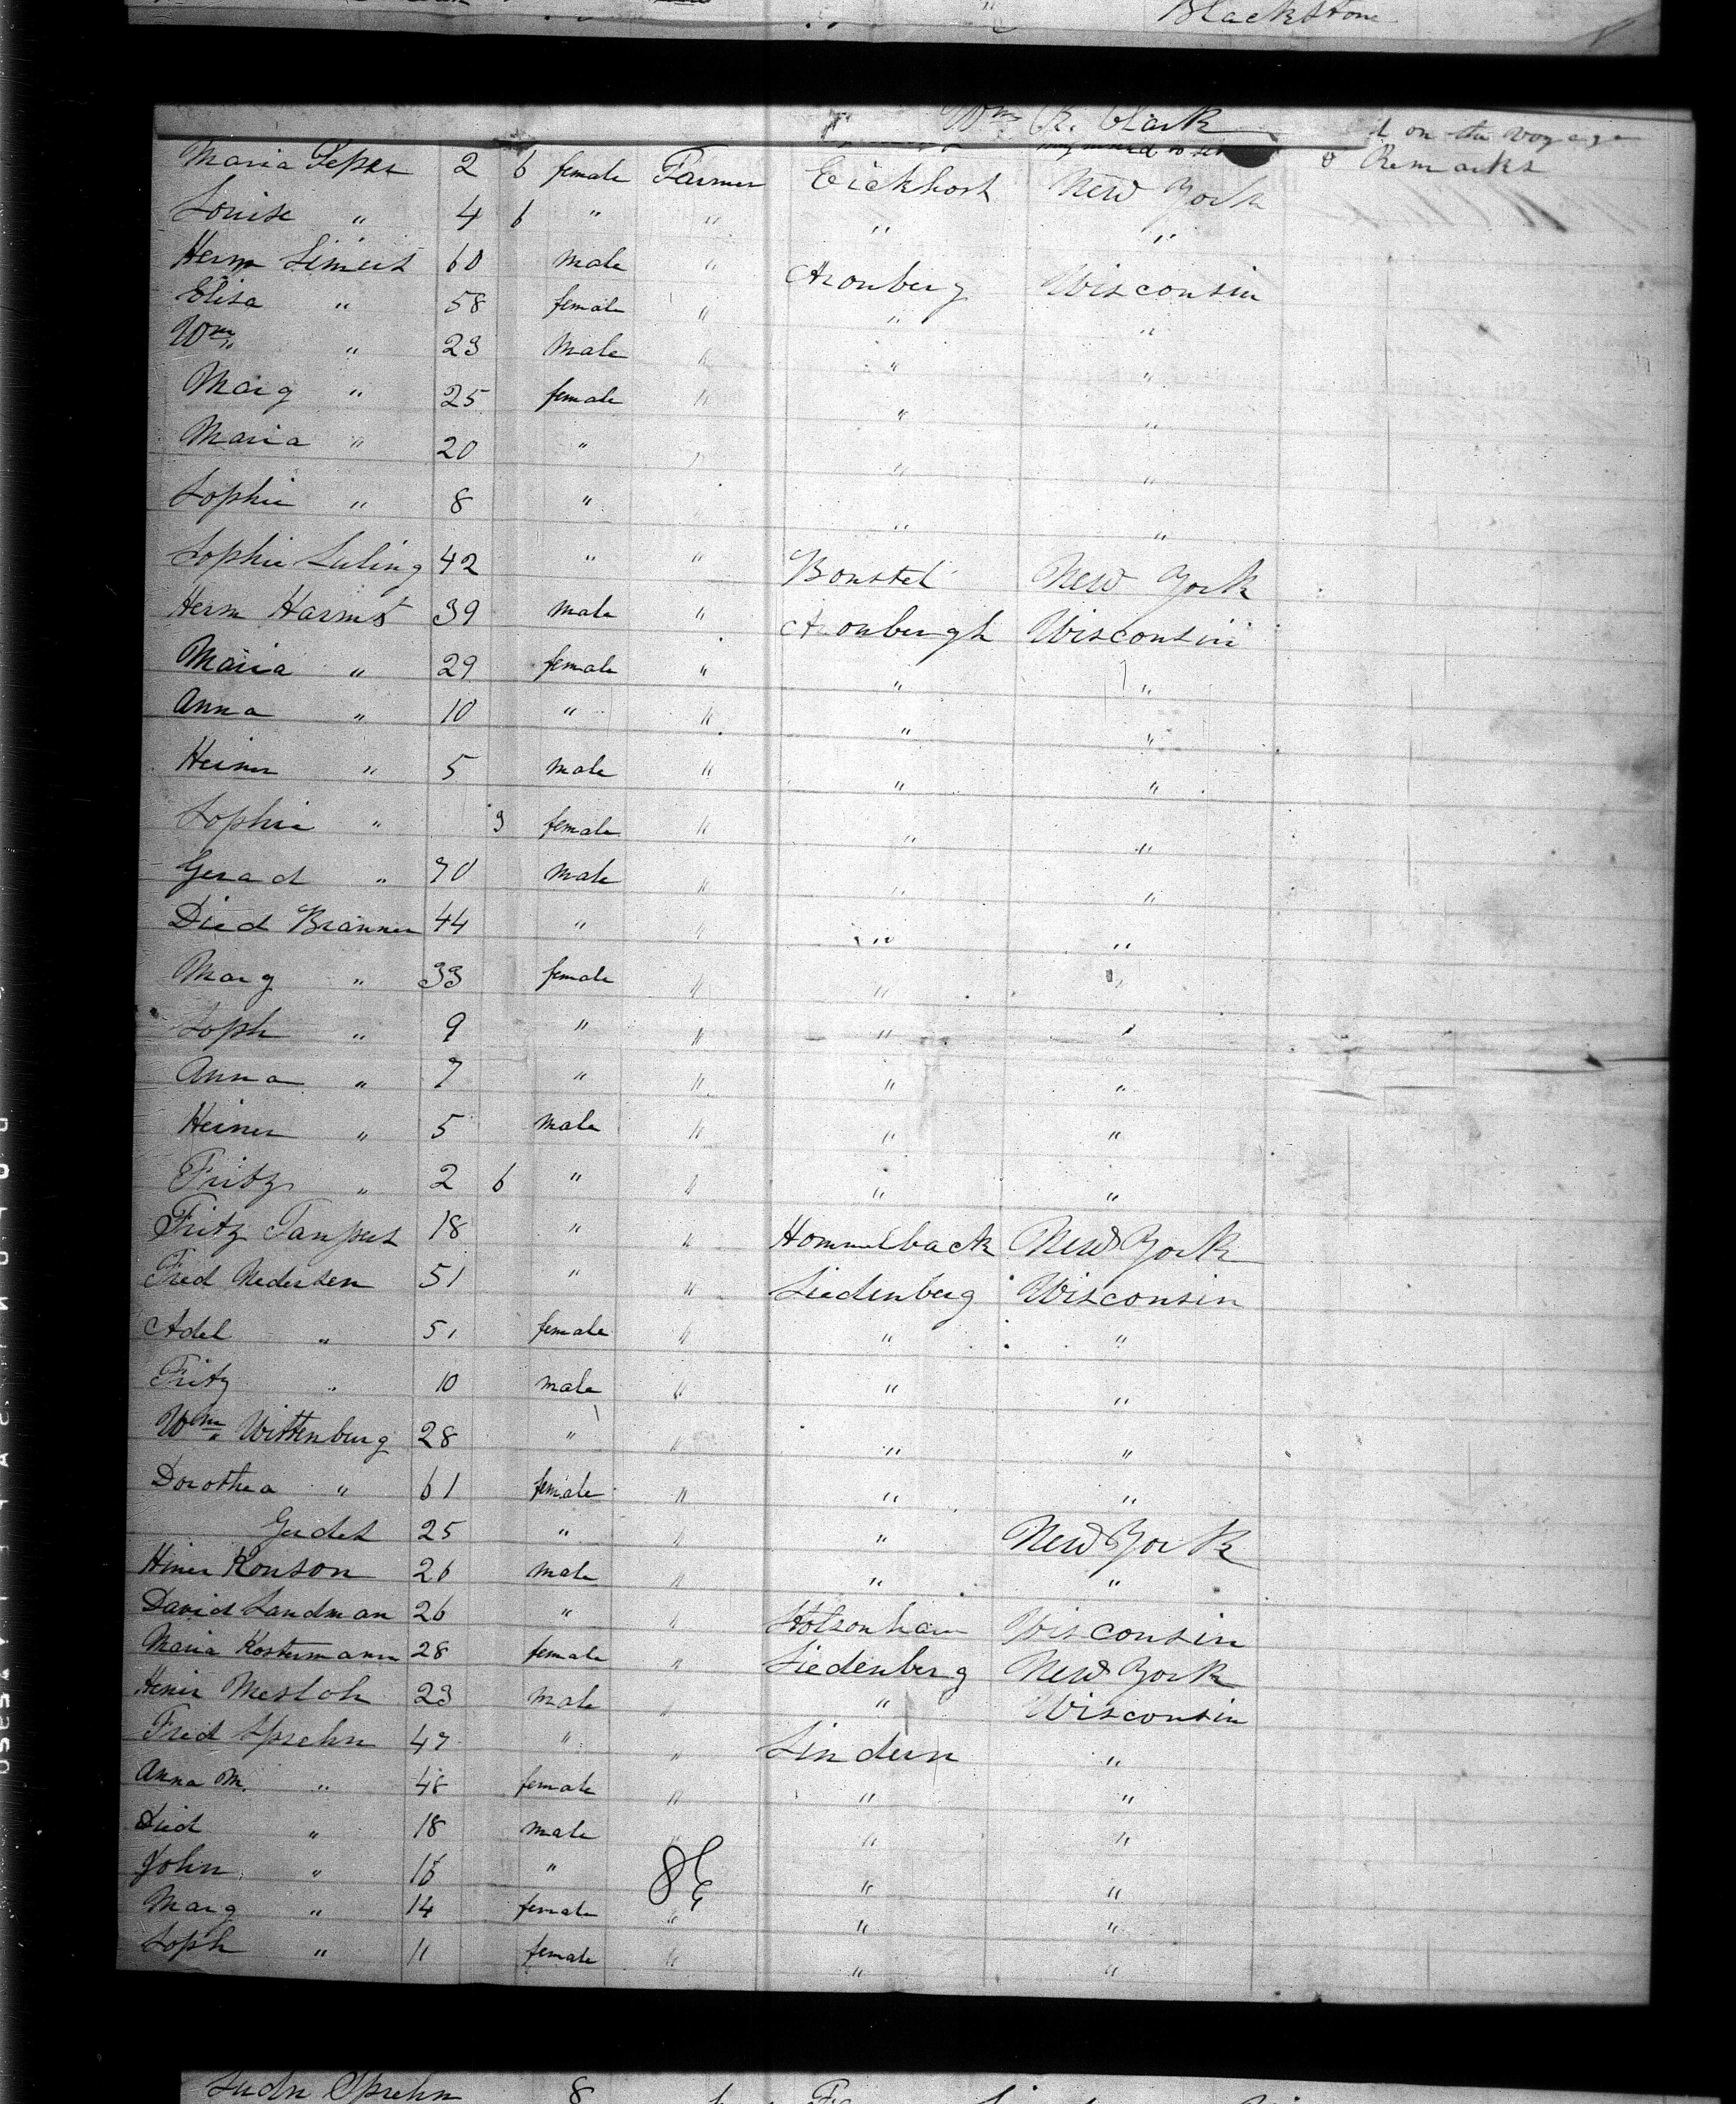 Blackstone
Wm R. Clark
d on the voyage
Remarks
Maria Lepker 2 6 female Farmer Eickhorst New York
Louise " 4 6 " " " "
Herm Simert 60 male " Aronberg Wisconsin
Elisa " 58 female " " "
Wm " 23 male " " "
Marg " 25 female " " "
Maria " 20 " " " "
Sophie " 8 " " "
Sophie Luling 42 " " Bonstel New York
Herm Harmst 39 male " Aronbergh Wisconsin
Maria " 29 female " " "
Anna " 10 " " " "
Heiner " 5 male " " "
Sophie " 3 female " " "
Gerad " 70 male " " "
Died Branner 44 " " " "
Marg " 33 female " " "
Soph " 9 " " " "
Anna " 7 " " " "
Heiner " 5 male " " "
Fritz " 2 6 " " " "
Fritz Tanpert 18 " " Hommelback New York
Fred Nedersen 51 " " Liedenberg Wisconsin
Adel " 51 female " " "
Fritz " 10 male " " "
Wm Wittenburg 28 " " " "
Dorothea " 61 female " " "
Gerdet 25 " " " New York
Hiner Konson 26 male " " "
David Landman 26 " " Holsonham Wisconsin
Maria Kostermann 28 female " Liedenberg New York
Henir Mesloh 23 male " " Wisconsin
Fred Sprehn 47 " " Lindern "
Anna M. " 48 female " " "
Died " 18 male " " "
John " 16 " " "
Marg " 14 female " " "
Soph " 11 female " " "
Sprehn 8